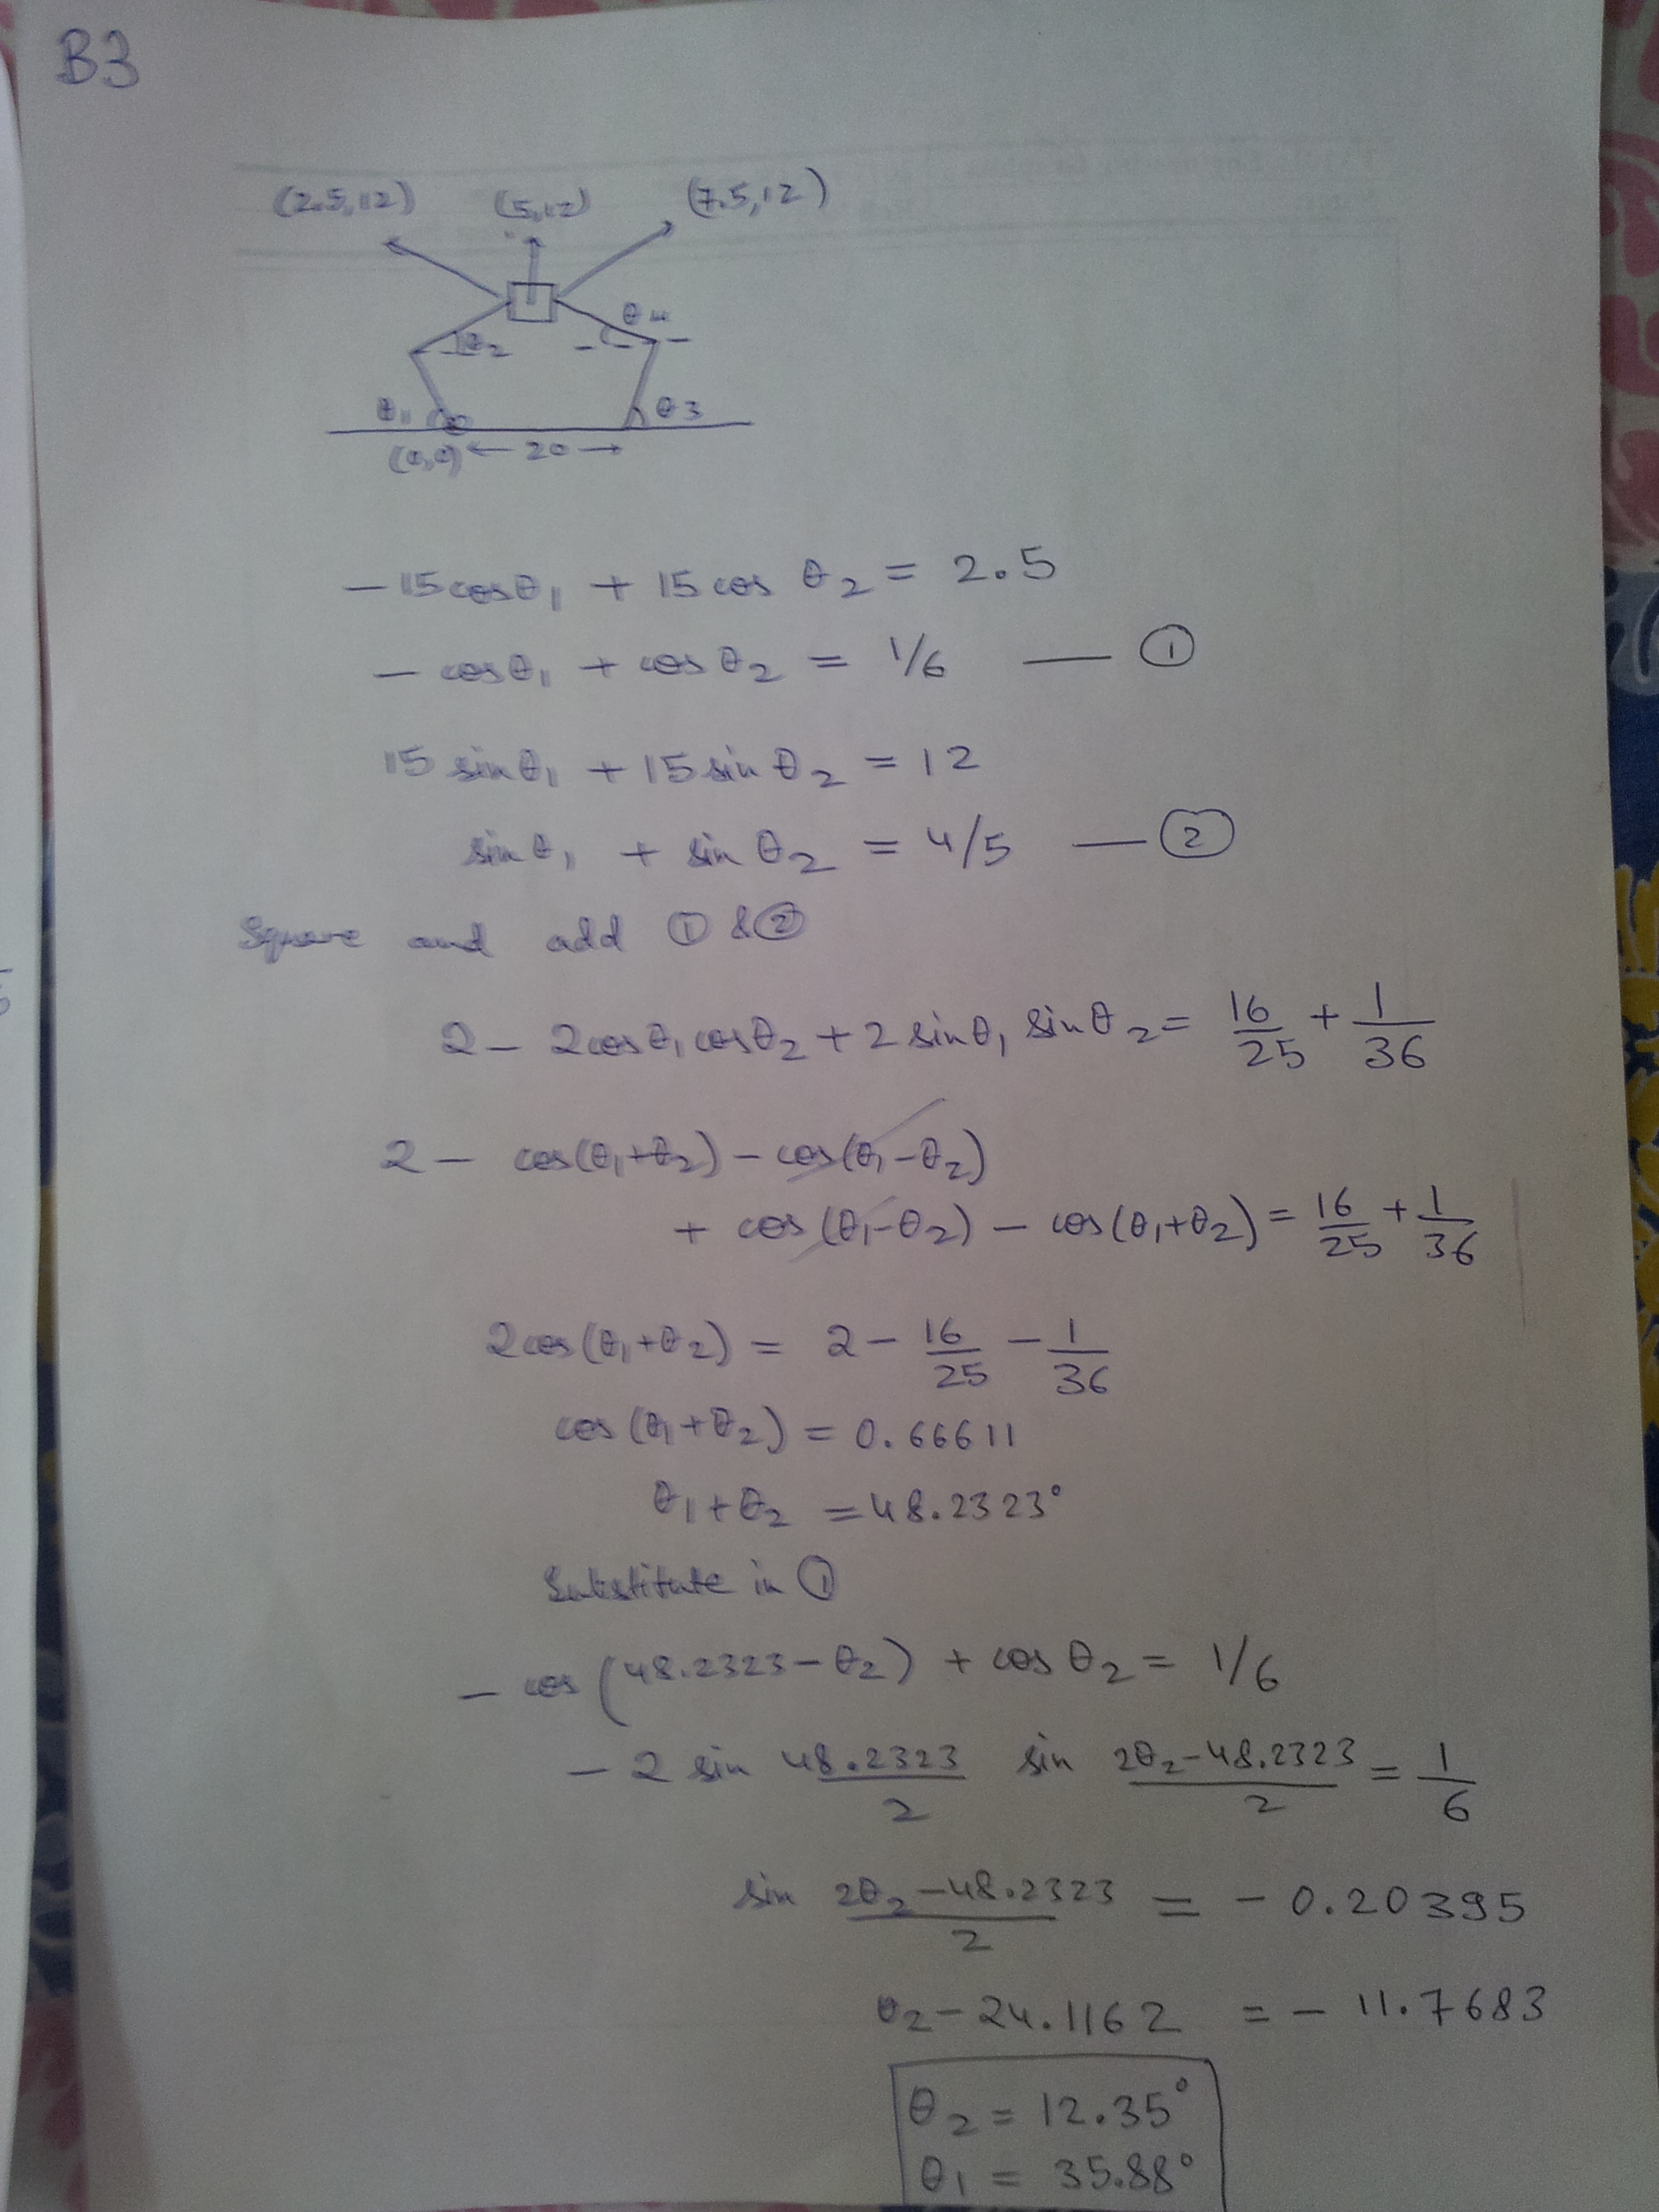 B3
(2.5,12) (5,12) (7.5,12)
θ2 θ4
θ1 θ3
(0,0) ← 20 →
- 15 cosθ1 + 15 cos θ2 = 2.5
- cosθ1 + cosθ2 = 1/6 — ①
15 sinθ1 + 15 sin θ2 = 12
sinθ1 + sin θ2 = 4/5 — ②
Square and add ① & ②
2 - 2cosθ1 cosθ2 + 2 sinθ1 sinθ2 = 16/25 + 1/36
2 - cos(θ1+θ2) - cos(θ1-θ2)
+ cos(θ1-θ2) - cos(θ1+θ2) = 16/25 + 1/36
2cos(θ1+θ2) = 2 - 16/25 - 1/36
cos(θ1+θ2) = 0.66611
θ1+θ2 = 48.2323°
Substitute in ①
- cos(48.2323-θ2) + cos θ2 = 1/6
- 2 sin 48.2323/2 sin 2θ2-48.2323/2 = 1/6
sin 2θ2-48.2323/2 = - 0.20395
θ2 - 24.1162 = - 11.7683
θ2 = 12.35°
θ1 = 35.88°